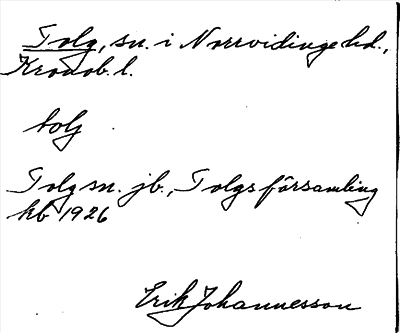 Tolg, sn. i Norrvidinge hd.,
Kronob. l.
tolj
Tolg sn. jb., Tolgs församling
kb 1926
Erik Johannesson